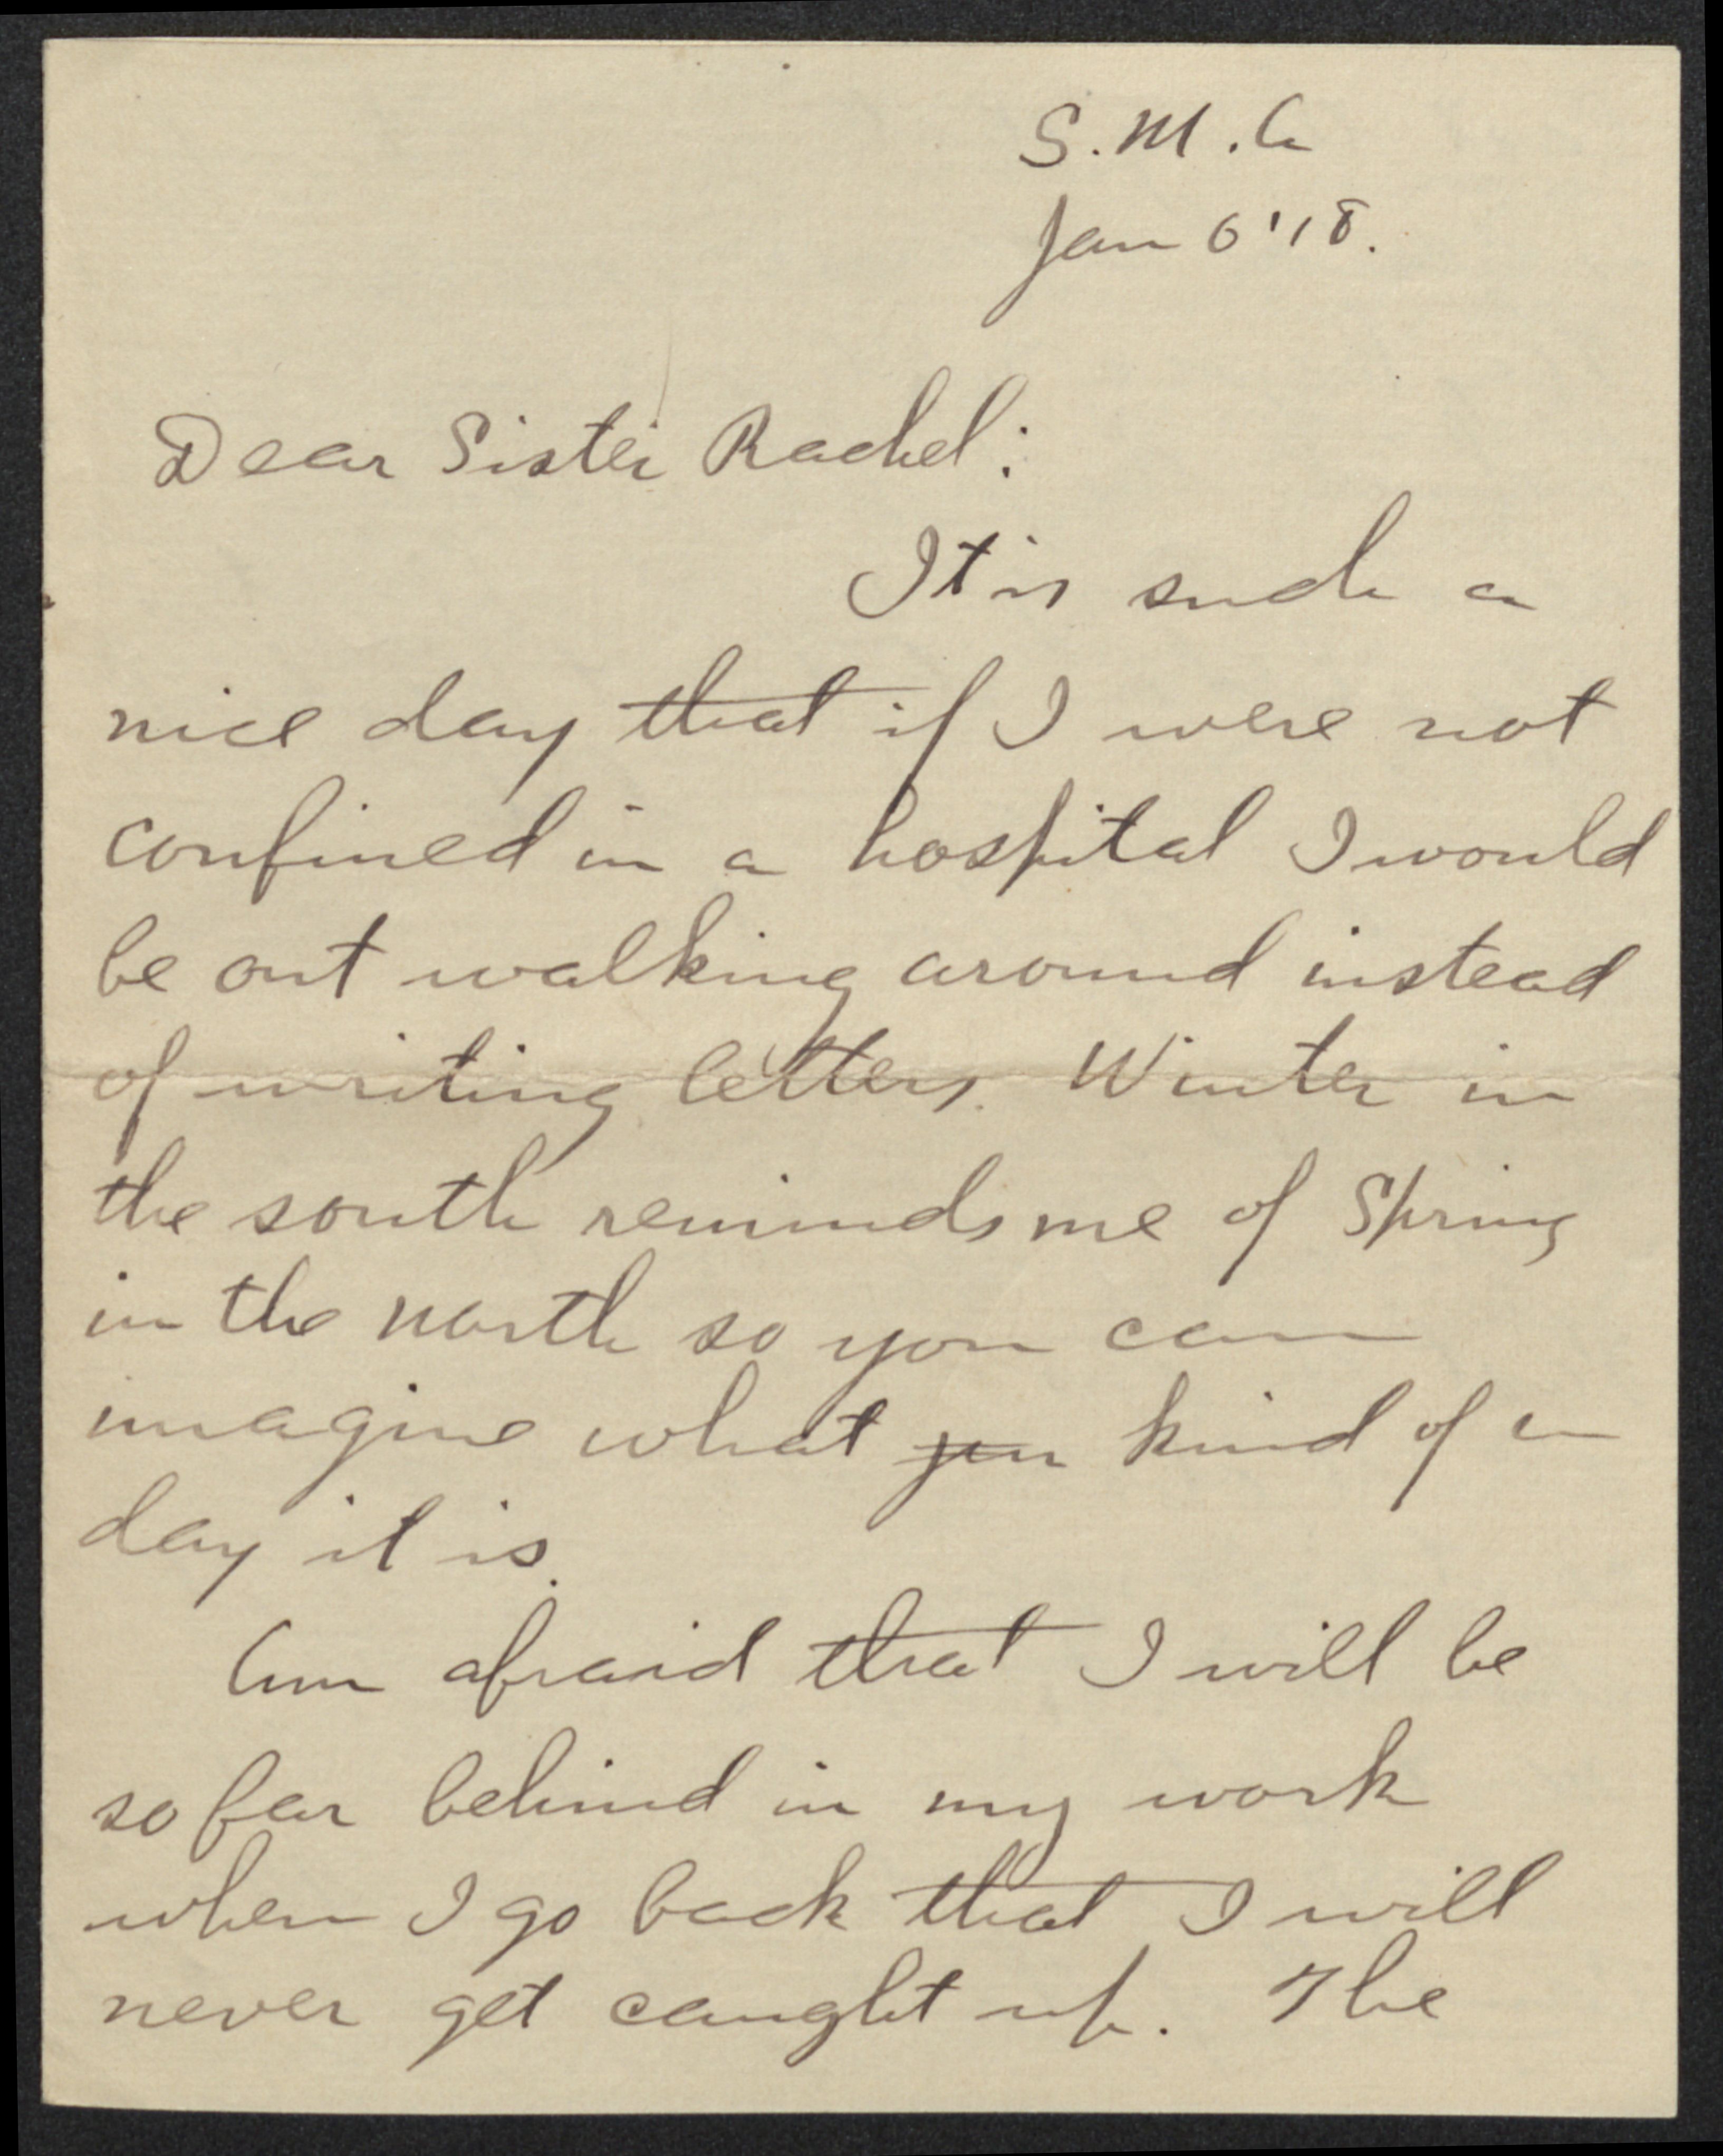 S. M. C
Jan 6 '18.
Dear Sister Rachel:
It is such a
nice day that if I were not
confined in a hospital I would
be out walking around instead
of writing letters. Winter in
the south reminds me of Spring
in the north so you can
imagine what kind of a
day it is.
Am afraid that I will be
so far behind in my work
when I go back that I will
never get caught up. The